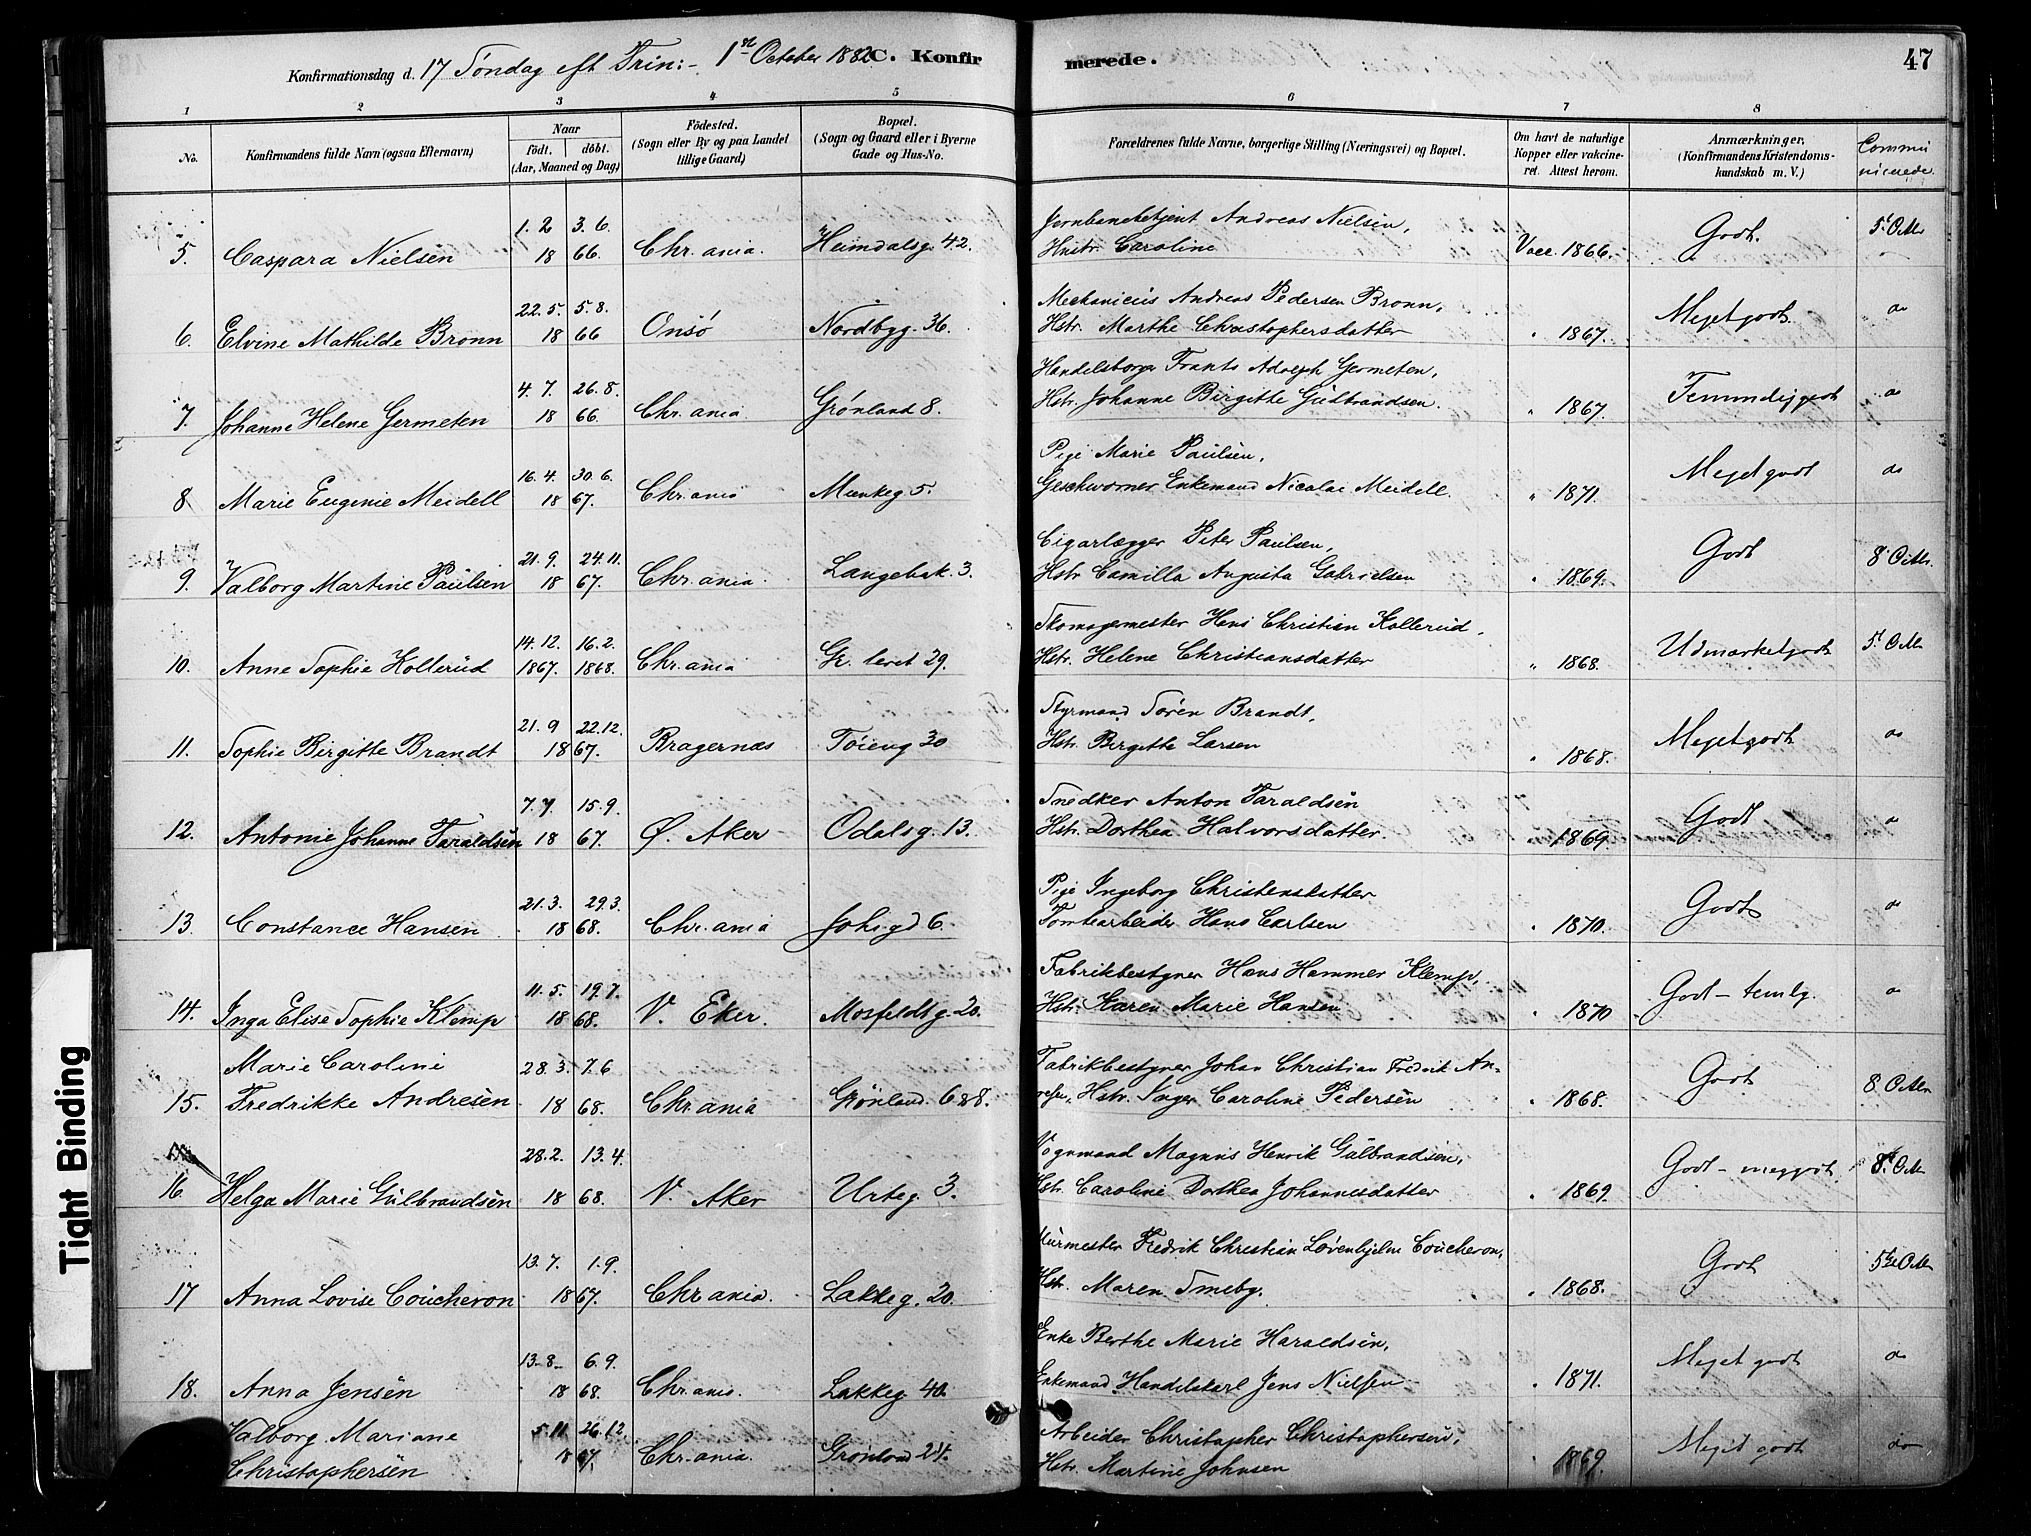 Konfirmationsdag d. 17 Söndag eft Trin:- 1st October 1882 C. Konfirmerede. 47
1 2 3 4 5 6 7 8
No. Konfirmandens fulde Navn (ogsaa Efternavn) Naar födt. döbt. (Aar, Maaned og Dag) Födested. (Sogn eller By og paa Landet tillige Gaard) Bopæl. (Sogn og Gaard eller i Byerne Gade og Hus-No. Forældrenes fulde Navne, borgerlige Stilling (Næringsvei) og Bopæl. Om havt de naturlige Kopper eller vakcineret. Attest herom. Anmærkninger. (Konfirmandens Kristendomskundskab m. V.) Communicerede
1.2 3.6. Jernbanebetjent Andreas Nielsen,
5. Caspara Nielsen 18 66. Chr.ania. Heimdalsg. 42. Hustr. Caroline Vacc. 1866. Godt. 5t Octbr
22.5. 5.8. Mechanicus Andreas Pedersen Bronn,
6. Elvine Mathilde Bronn 18 66 Onsö Nordbyg. 36. Hstr. Marthe Christophersdatter " 1867. Meget godt. do
4.7. 26.8. Handelsborger Frants Adolph Germeten,
7. Johanne Helene Germeten 18 66. Chr.ania Grönland 8. Hstr. Johanne Birgitte Gulbrandsen. " 1867. Temmelig godt do
16.4. 30.6. Pige Marie Paulsen,
8 Marie Eugenie Meidell 18 67. Chr.ania Munkeg. 5. Geschworner Enkemand Nicolai Meidell. " 1871. Meget godt do
21.9. 24.11. Cigarlægger Peter Paulsen,
9. Valborg Martine Paulsen 18 67. Chr.ania. Langebak. 3. Hstr Camilla Augusta Gabrielsen " 1869. Godt 8 Octbr.
14.12. 16.2. Skomagermester Hans Christian Kollerud,
10. Anne Sophie Kollerud 1867. 1868. Chr.ania Gr. leret 29. Hstr. Helene Christiansdatter " 1868. Udmærket godt 5t Octbr
21.9 22.12. Styrmand Sören Brandt,
11. Sophie Birgitte Brandt 18 67. Bragernæs Töieng 30 Hstr. Birgitte Larsen " 1868. Meget godt do
7.7. 15.9. Snedker Anton Taraldsen
12. Antonie Johanne Taraldsen 18 67. Ø. Aker Odalsg. 13. Hstr. Dorthea Halvorsdatter " 1869. Godt do
21.3. 29.3. Pige Ingeborg Christensdatter
13. Constance Hansen 18 68. Chr.ania Johs.gd 6. Tomtearbeider Hans Carlsen " 1870. Godt do
11.5. 19.7. Fabrikbestyrer Hans Hammer Klemp,
14. Inga Elise Sophie Klemp 18 68. V. Eker. Mosfeldtsg. 20. Hstr. Karen Marie Hansen " 1870 Godt - temlg. do
Marie Caroline 28.3. 7.6 Fabrikbestyrer Johan Christian Fredrik An-
15. Fredrikke Andresen 18 68. Chr.ania Grönland. 6&8. resen, Hstr. Inger Caroline Pedersen " 1868. Godt 8 Octbr
28.2. 13.4. Vognmand Magnus Henrik Gulbrandsen,
16. Helga Marie Gulbrandsen 18 68. V. Aker Urteg. 3. Hstr. Caroline Dorthea Johannesdatter " 1869. Godt - meggodt 8t Octbr
13.7. 1.9. Murmester Fredrik Christian Lövenhjelm Coucheron,
17 Anna Lovise Coucheron 18 67. Chr.ania. Lakkeg. 20. Hstr. Maren Smeby. " 1868. Godt 5te Octbr
13.8 6.9. Enke Berthe Marie Haraldsen,
18. Anna Jensen 18 68. Chr.ania. Lakkeg. 40. Enkemand Handelskarl Jens Nielsen " 1871. Meget godt do
Valborg Mariane 5.11 26.12. Arbeider Christopher Christophersen,
Christophersen 18 67. Chr.ania. Grönland 24. Hstr. Martine Johnsen " 1869. Meget godt do
Tight Binding